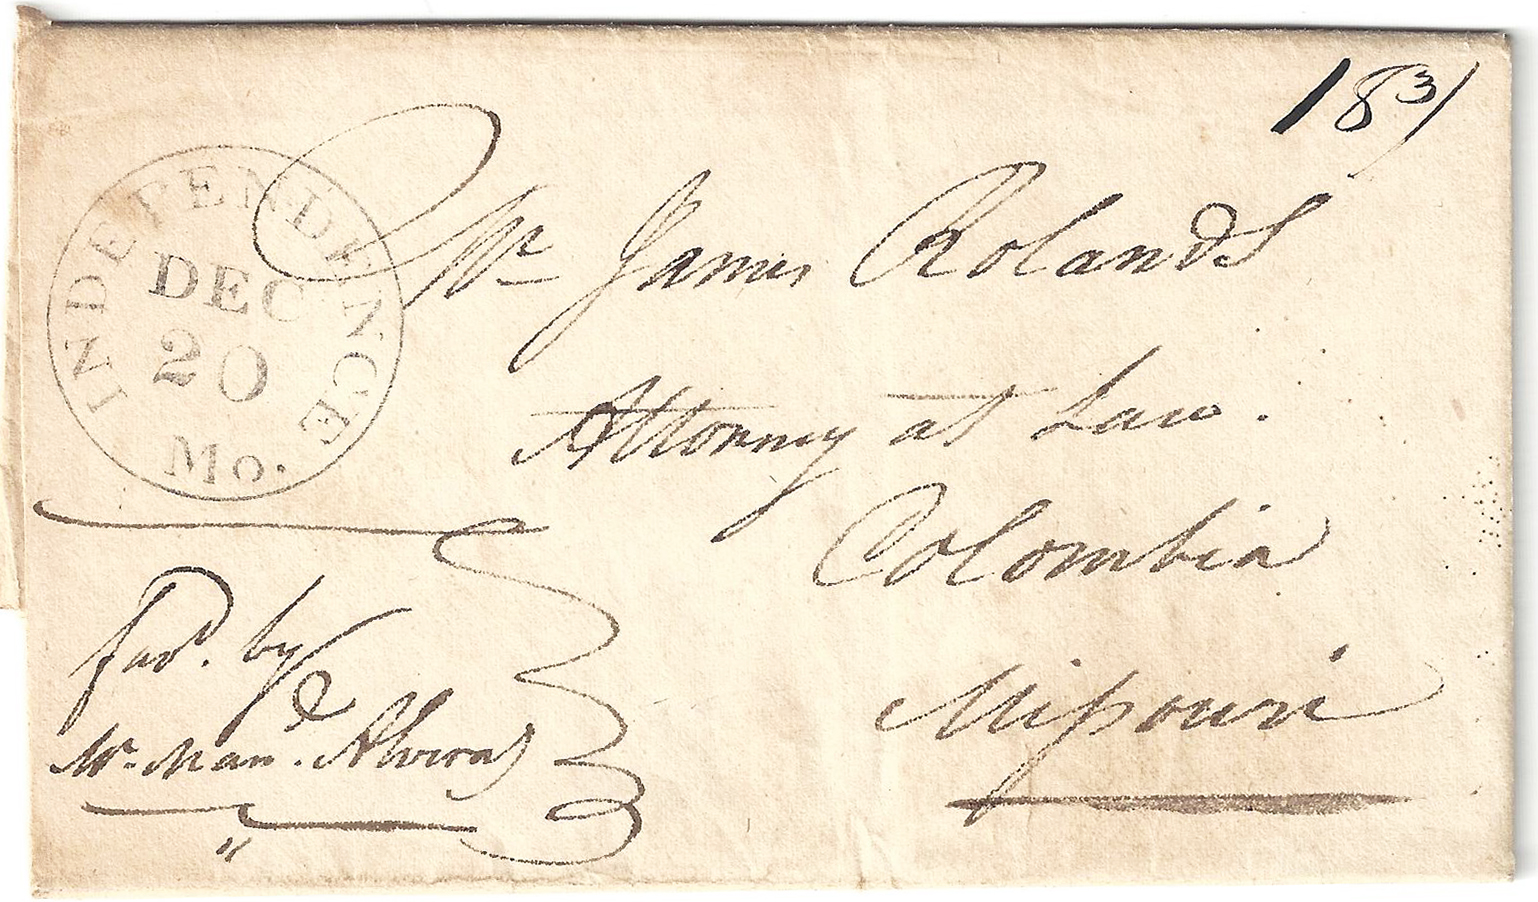 18 3/
INDEPENDENCE
DEC
20
Mo.
Mr James Rolands
Attorney at Law.
Colombia
Missouri
favd. by
Mr. Man. Alvires